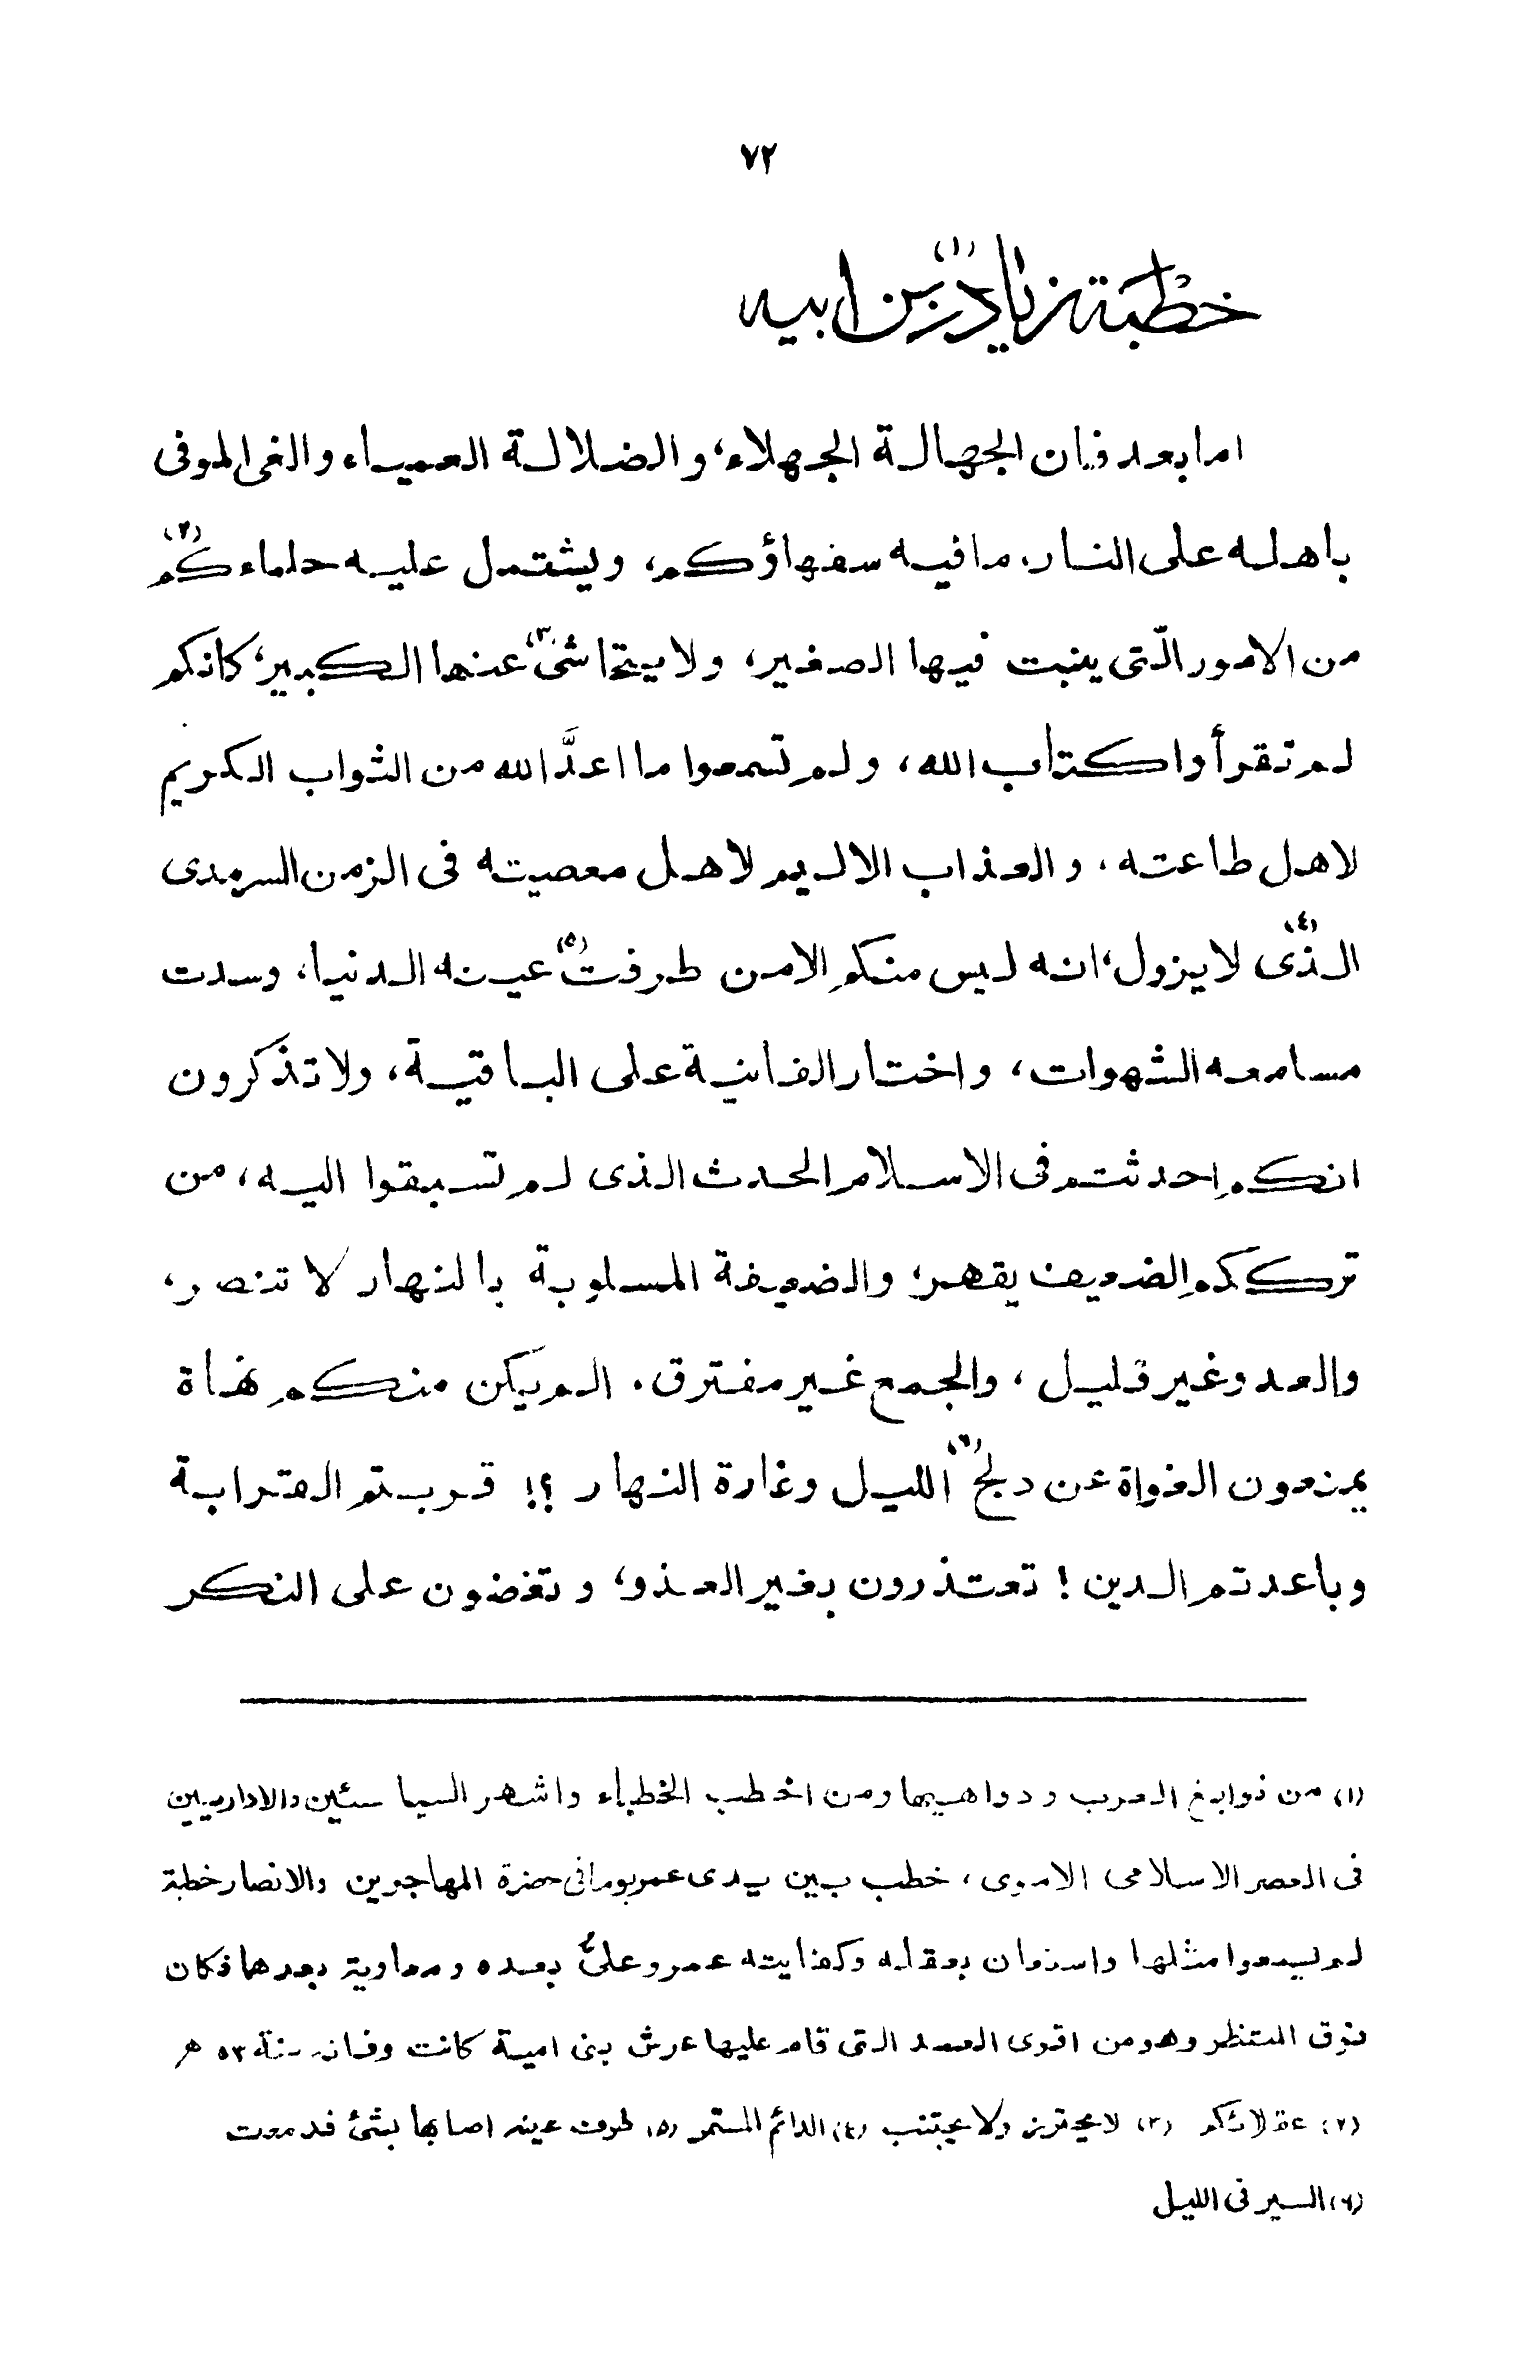 ٧٢
خطبة زياد بن ابيه (١)
اما بعد فان الجهالة الجهلاء، والضلالة العمياء والغى الموفى
باهله على النار. ما فيه سفهاؤكم، ويشتمل عليه حلماءكم (٢)
من الامور الّتى ينبت فيها الصغير، ولا يتحاشىٰ (٣) عنها الكبير، كانكم
لم تقرأوا كتاب الله، ولم تسمعوا ما اعدَّ الله من الثواب الكريم
لاهل طاعته. والعذاب الاليم لاهل معصيته فى الزمن السرمدى (٤)
الذّى لا يزول، انه ليس منكم الا من طرفت (٥) عينه الدنيا، وسدت
مسامعه الشهوات، واختار الفانية على الباقية، ولا تذكرون
انكم احدثتم فى الاسلام الحدث الذى لم تسبقوا اليه، من
ترككم الضعيف يقهر، والضعيفة المسلوبة بالنهار لا تنصر،
والعدو غير قليل، والجمع غير مفترق. الم يكن منكم نهاة
يمنعون الغواة عن دلج (٦) الليل وغارة النهار ؟! قربتم القرابة
وباعدتم الدين! تعتذرون بغير العذو، وتغضون على النكر
(١) من نوابغ العرب ودواهيها ومن اخطب الخطباء واشهر السياسئين والاداريين
فى العصر الاسلامى الاموى، خطب بين يدى عمر يوما فى حضرة المهاجرين والانصار خطبة
لم يسمعوا مثلها واستعان بعقله وكفايته عمر وعلىٌّ بعده ومعاوية بعدها فكان
فوق المنتظر وهو من اقوى العمد التى قام عليها عرش بنى امية كانت وفاته سنة ٥٣ هـ
(٢) عقلائكم (٣) لا يحترز ولا يجتنب (٤) الدائم المستمر (٥) طرفت عينه اصابها بشئ فدمعت
(٦) السير فى الليل